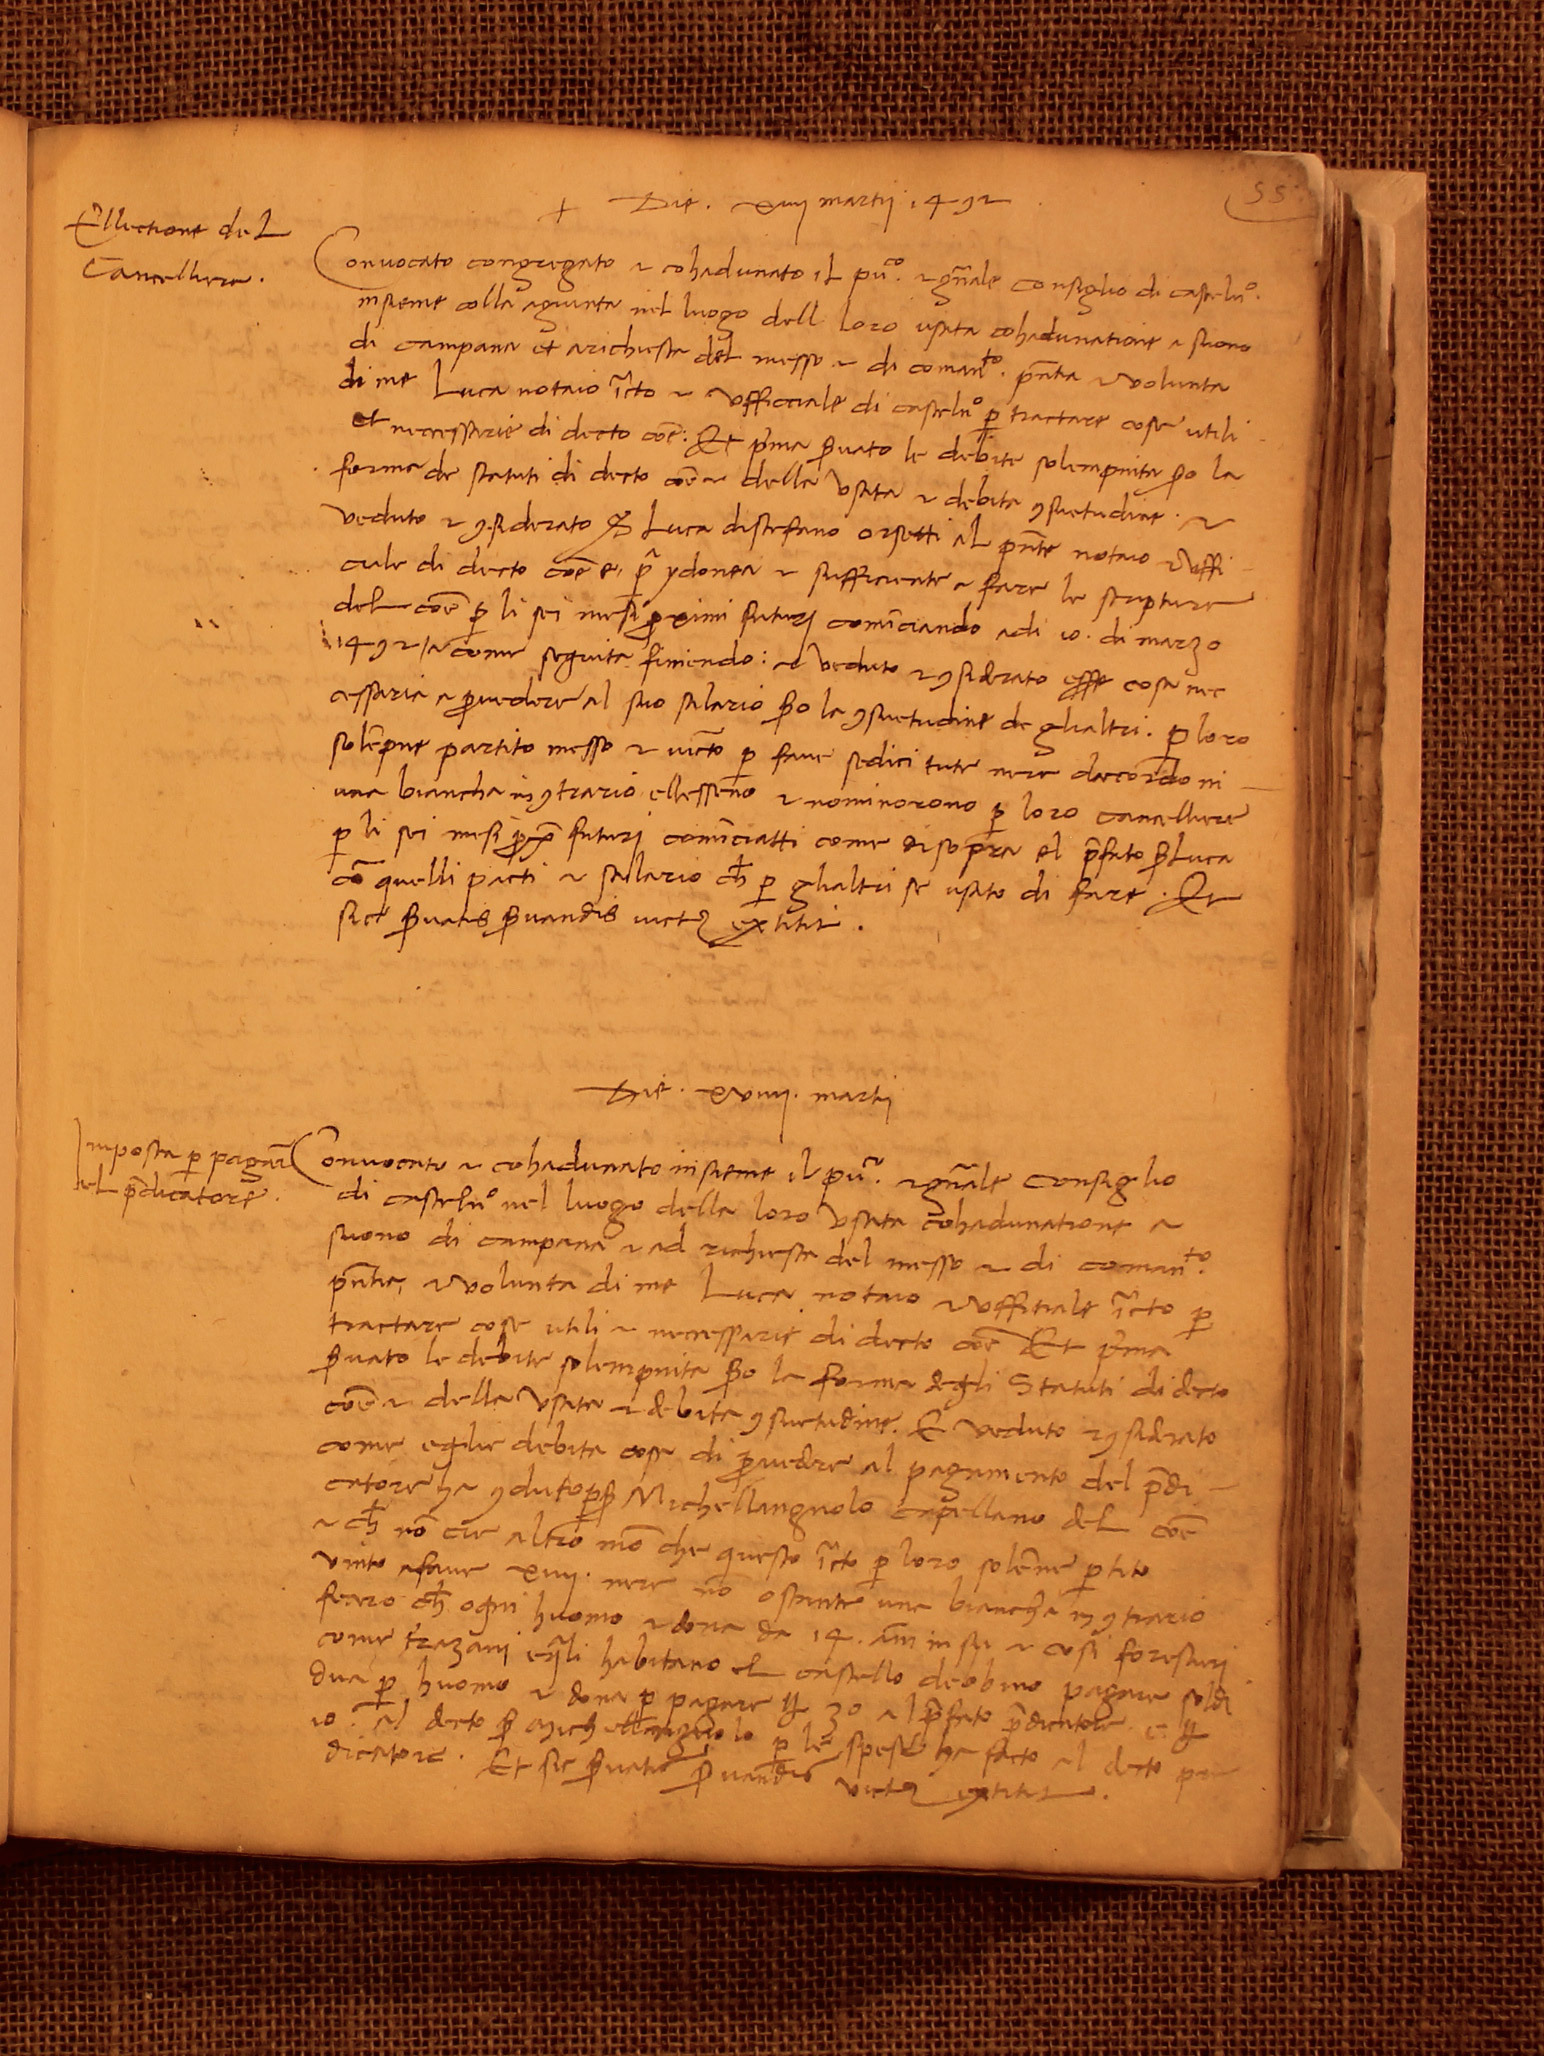 55
+ Die . xiiij martij . 1492
Ellectione del
Cancelliere .
Convocato congregato et cohadunato il pu.co et gñale consiglio di casteln.o
insieme colla agiunta nel luogo dell loro usata cohadunatione a suono
di campana et arichiesta del messo et di coman.to pñtia et volunta
di me Luca notaio ĩcto et Ufficiale di casteln.o p tractare cose utili
et necessarie di decto coẽ . Et p'ma s'vato le debite solempnita s'o la
forma de statuti di decto coẽ et della usata et debita 9suetudine . et
veduto et 9siderato S. Luca distefano orsetti al pñte notaio et uffi
ciale di decto coẽ e, p ydonea et sufficiente a fare le scripture
del coẽ p li sei mesi proximi futuri comĩciando adi 10 . di marzo
1492 / et come seguita finendo : et veduto et 9siderato esse cosa nec
essaria a provedere al suo salario s'o la 9suetudine de glialtri . p loro
solẽpne partito messo et vĩcto p fave sedici tute nere dacordo ni
una biancha in 9trario ellesseno et nominorono p loro cancelliere
p li sei mesi prox̃ futuri comĩciatti come disopra el p̃fato s. Luca
cõ quelli pacti et salario ch̃ p glialtri se usato di fare . Et
sic s'vatis s'vandis vict9 extitit .
Die . xviiij . martij
Imposta p pagar̃
el p̃dicatore .
Convocato et cohadunato insieme il pu.co et gñale consiglio
di casteln.o nel luogo della loro usata cohadunatione a
suono di campana et ad richiesta del messo et di coman.to
pñtia, et volunta di me Luca notaio et uffitiale ĩcto p
tractare cose utili et necessarie di decto coẽ Et p'ma
s'vato le debite solempnita s'o la forma degli Statuti di decto
coẽ et della usata et debita 9suetudine . E veduto et 9siderato
come eglie debita cosa di provedere al pagamento del p̃di
catore ha 9duto p s. Michellangnolo capellano del coẽ
et ch̃ nõ cie altro mõ che questo ĩcto p loro solẽne ptito
vinto a fave xiiij . nere nõ ostante una biancha in 9trario
fenro ch̃ ogni huomo et dona da 14 . añi in su et cosi forestieri
come trazani e q̃li habitano el castello debbino pagare soldi
dua p huomo et dona p pagare ₶ 30 al p̃fato p̃dicatore . e ₶
10 . al decto s. Michellangnolo p le spese ha facto al decto pre
dicatore . Et sic s'vatis s'vandis vict9 extitit .